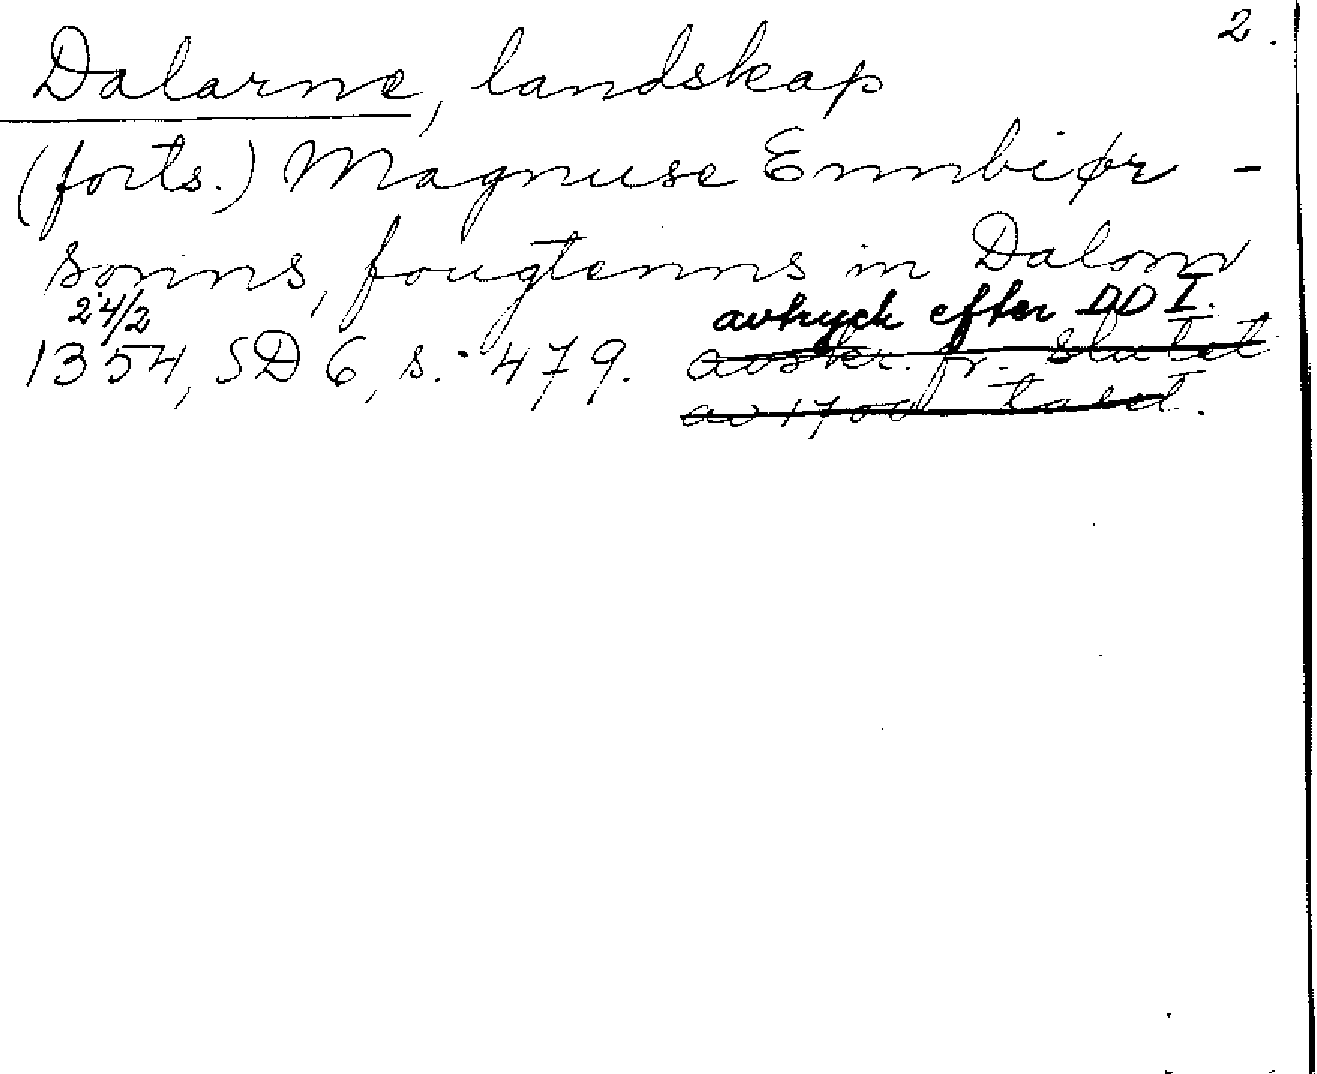 2.
Dalarne, landskap
(forts.) Magnuse Ennbiør-
sonns, fougtenns in Dalom
24/2 avtryck efter DD I.
1354, SD 6, s. 479. avskr. fr. slutet
av 1700 talet.